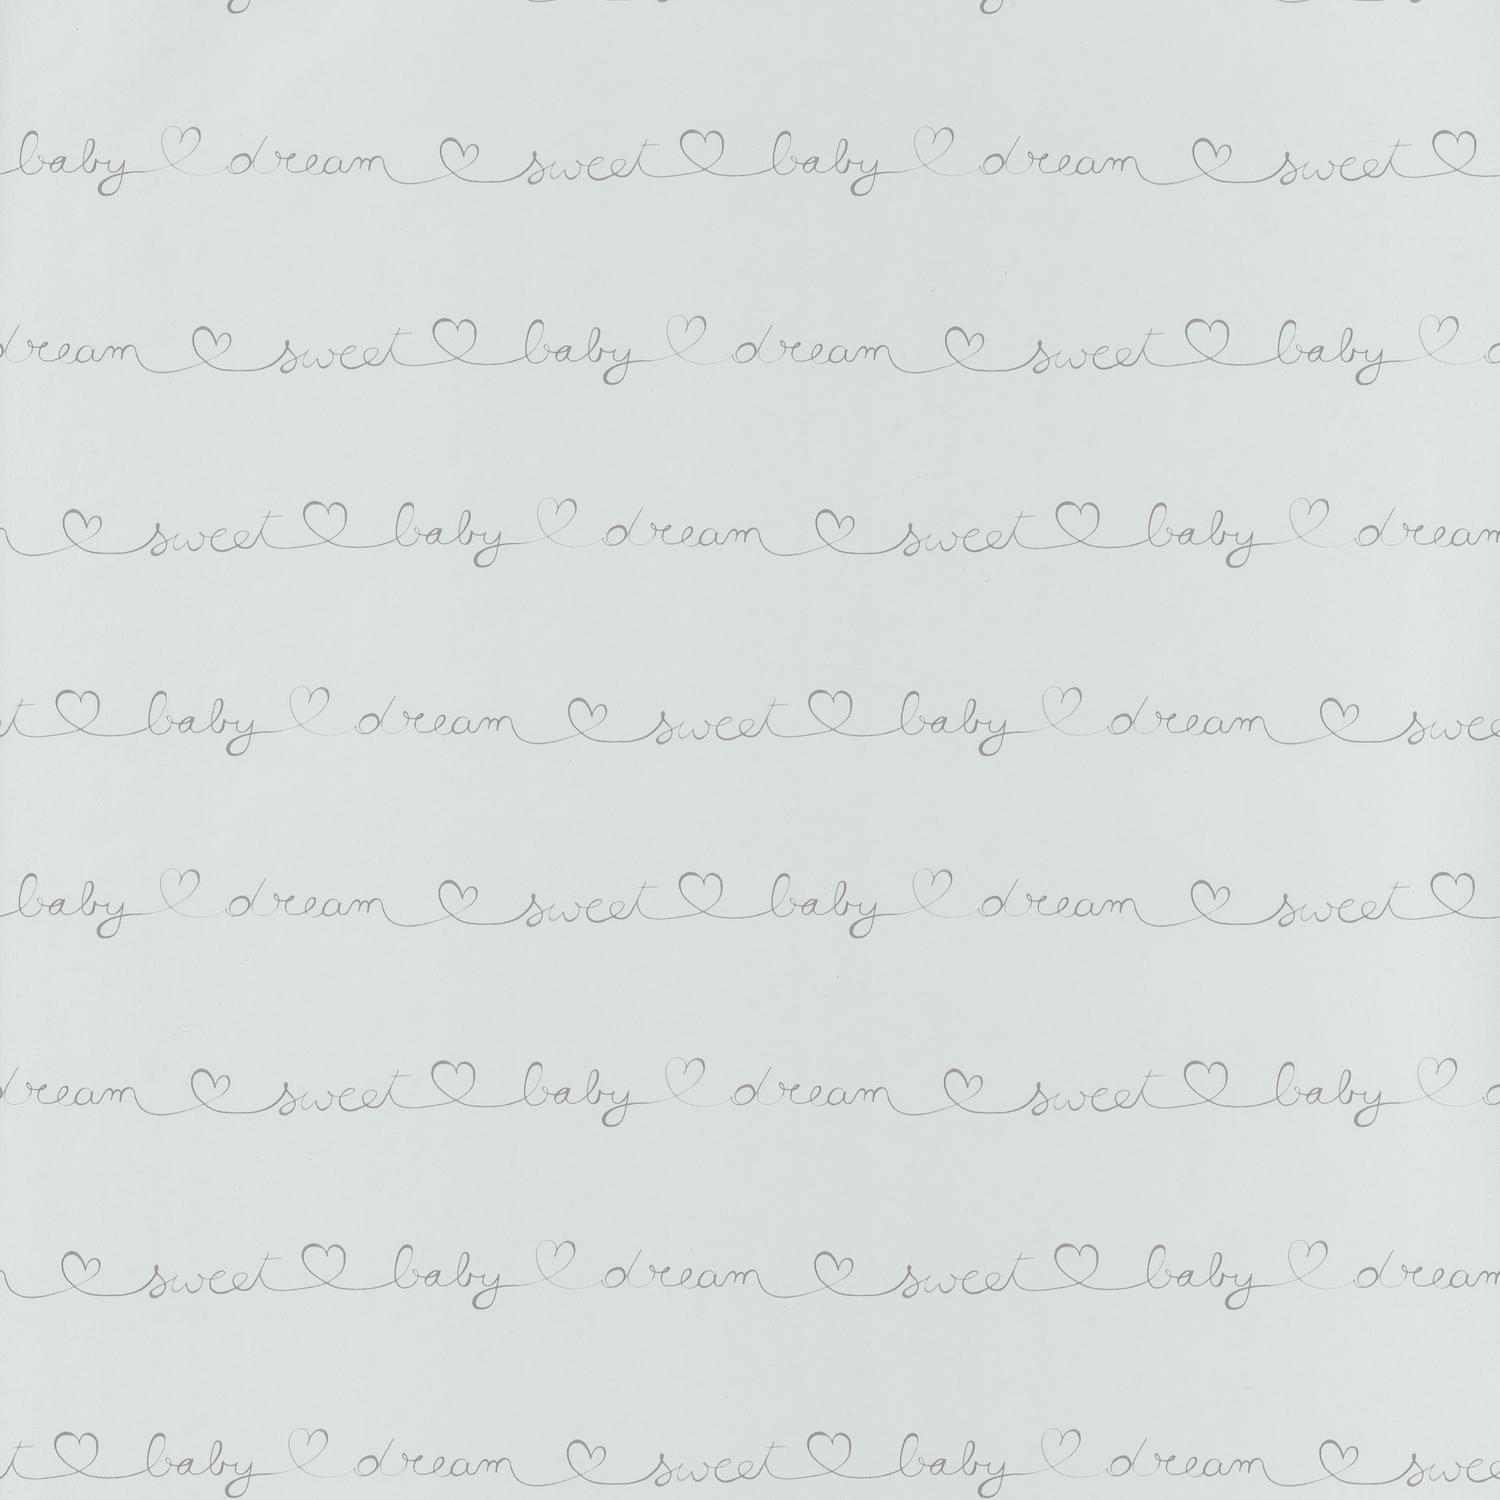 baby dream sweet baby dream sweet
dream sweet baby dream sweet baby
sweet baby dream sweet baby dream
baby dream sweet baby dream
baby dream sweet baby dream sweet
dream sweet baby dream sweet baby
sweet baby dream sweet baby dream
baby dream sweet baby dream